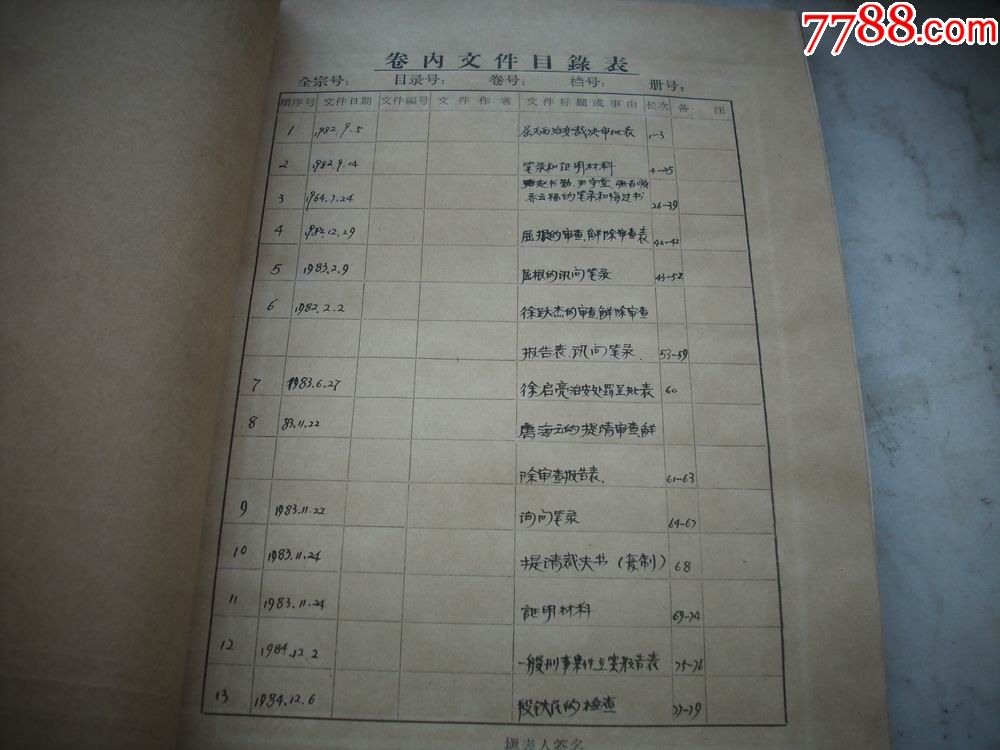 7788.com
卷内文件目錄表
全宗号: 目录号: 卷号: 档号: 册号:
順序号 文件日期 文件编号 文件作者 文件标题或事由 长次 备注
1 1982.9.5 治安裁决审批表 1-3
2 1982.9.14 笔录和证明材料 4-25
3 1964.7.24 赵书勤、尹守堂、
的笔录和悔过书 26-39
4 1982.12.29 屈根的审查、解除审查表 40-42
5 1983.2.9 屈根的讯问笔录 43-52
6 1982.2.2 徐跃杰的审查解除审查
报告表、讯问笔录. 53-59
7 1983.6.27 徐启亮治安处罚呈批表 60
8 83.11.22 唐海云的提请审查解
除审查报告表. 61-63
9 1983.11.22 询问笔录 64-67
10 1983.11.24 提请裁决书(复制) 68
11 1983.11.24 証明材料 69-74
12 1984.12.2 一般刑事案件立案报告表 75-76
13 1984.12.6 殷铁民的检查 77-79
填表人签名